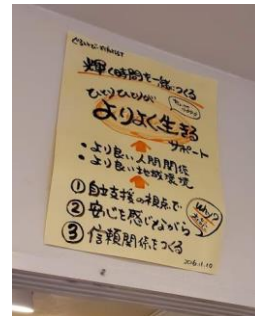 輝く時間を一緒につくる
ひとりひとりが
よりよく生きる
サポート
・より良い人間関係
・より良い地域環境
① 自立支援の視点で
② 安心を感じながら
③ 信頼関係をつくる
2016.1.10